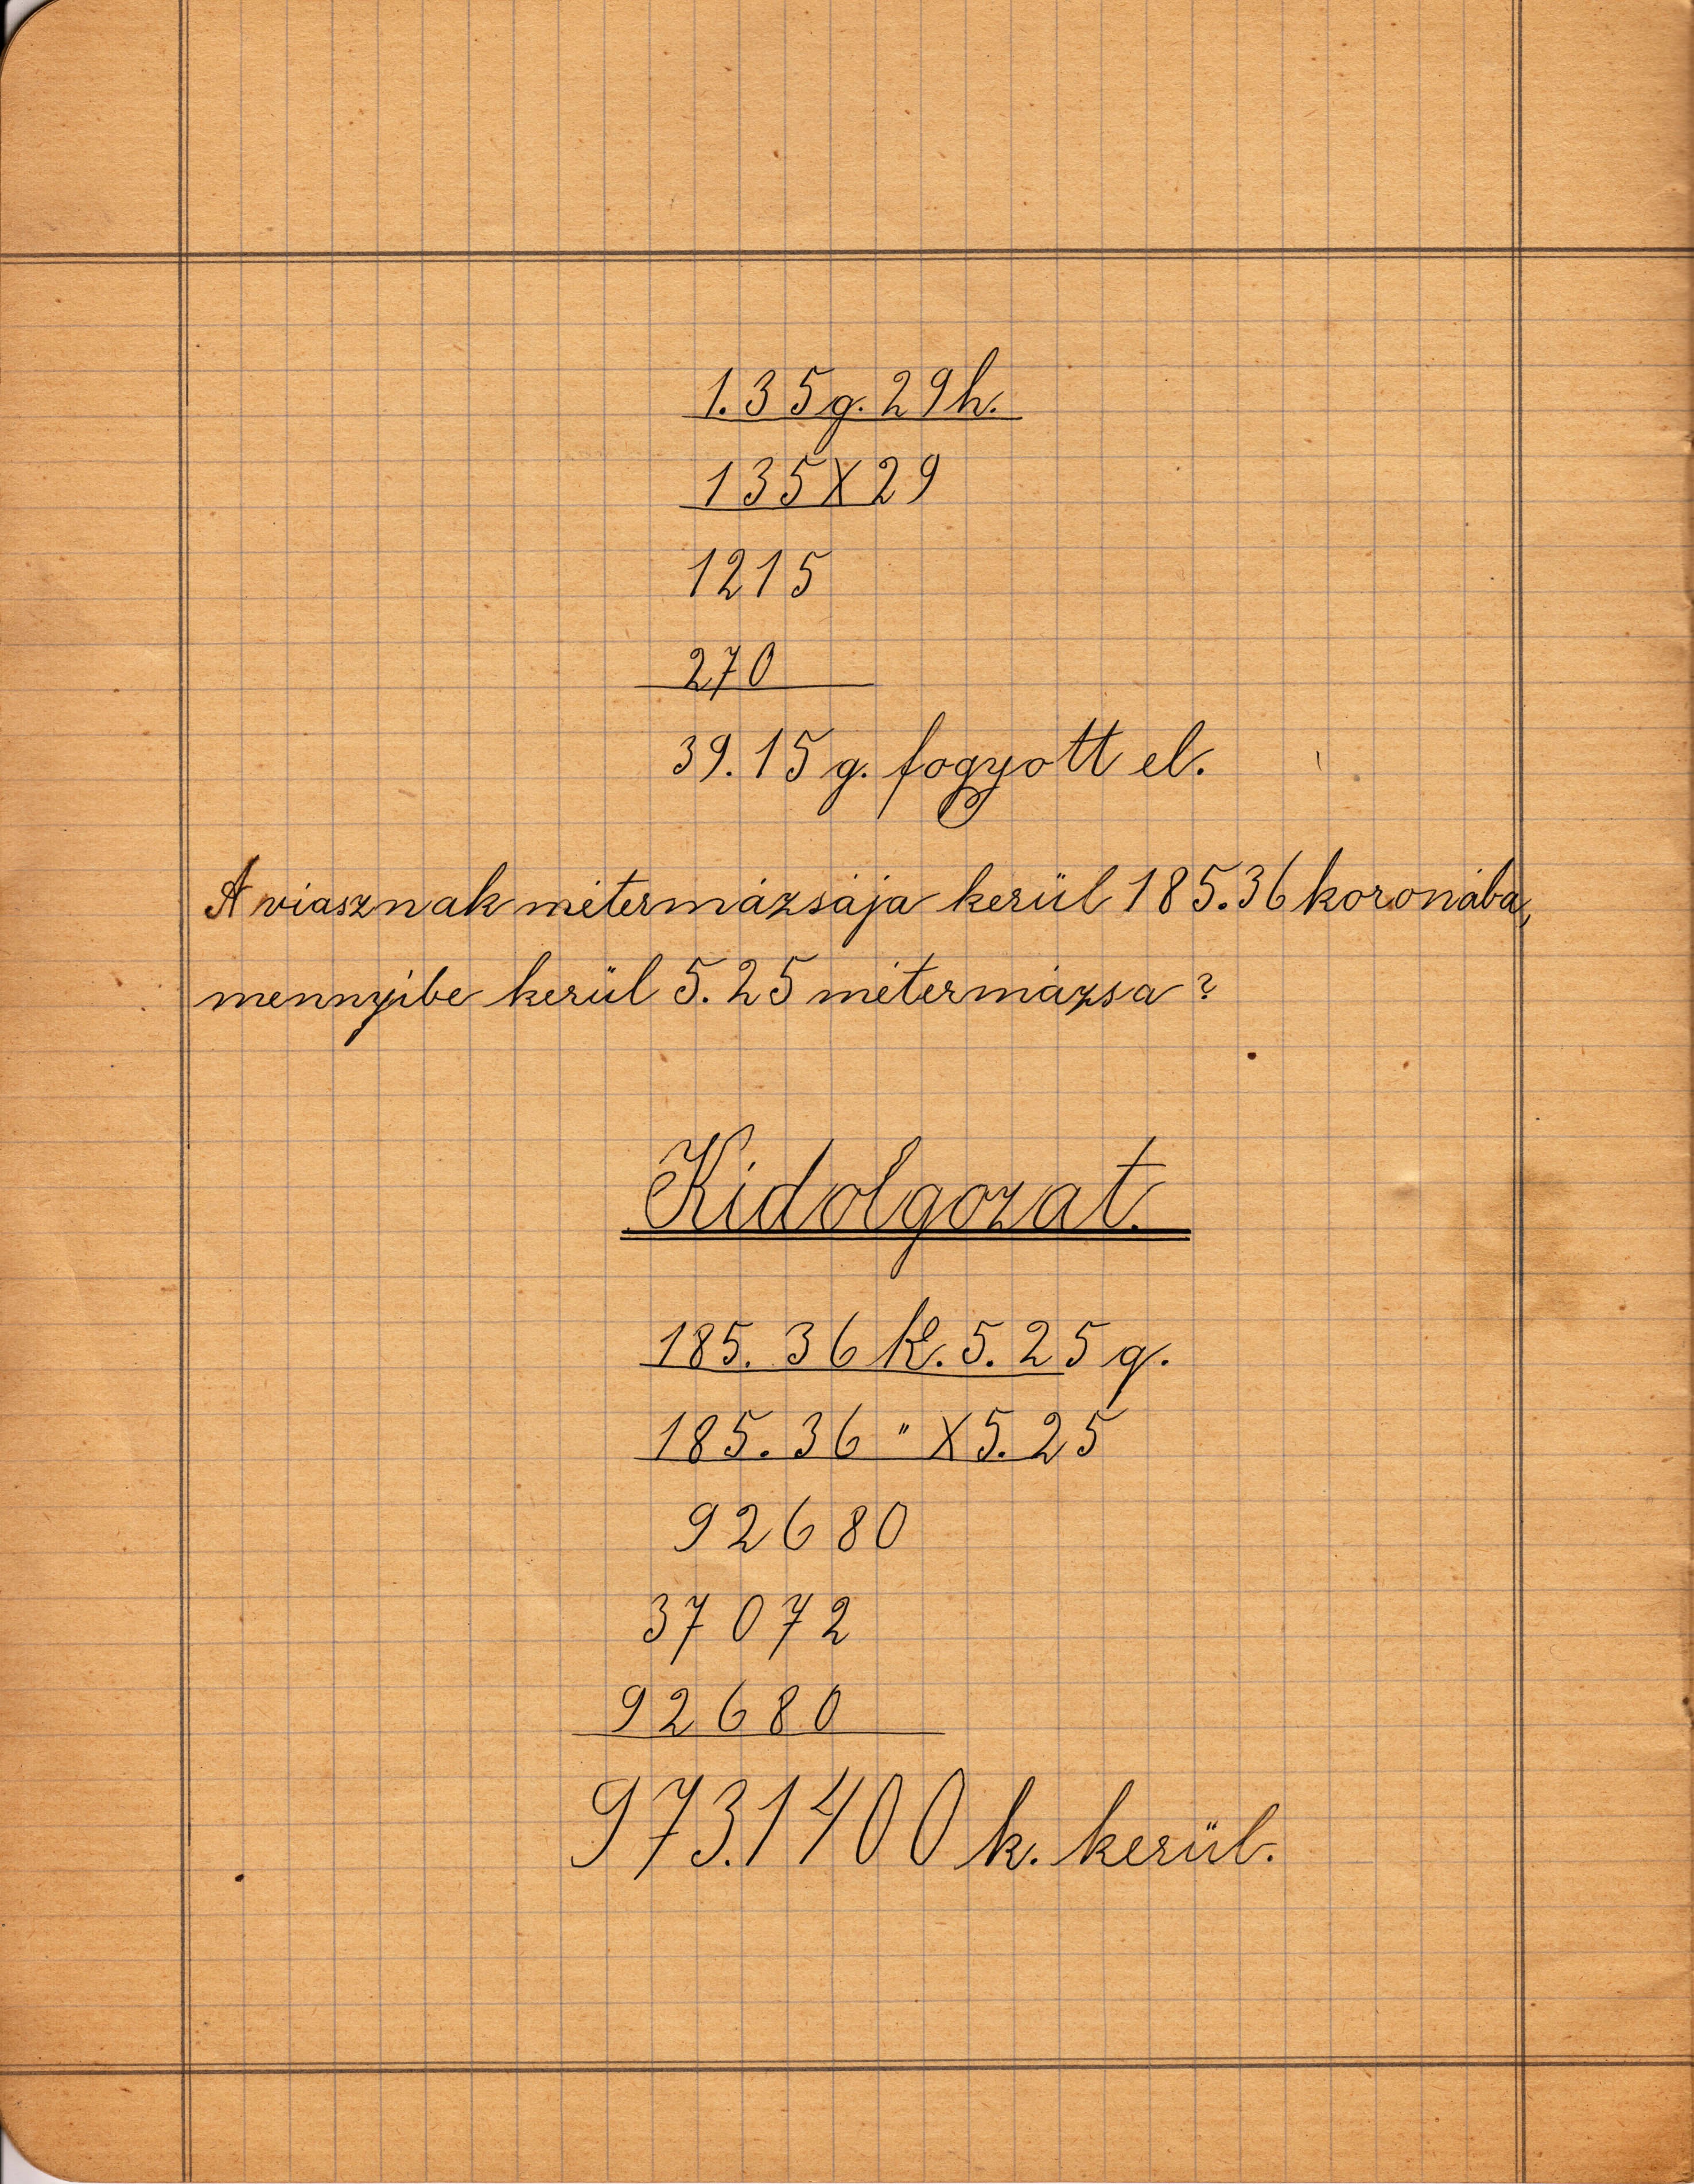 1.35g. 29h.
135X29
1215
270
39.15 g. fogyott el.
A viasznak métermázsája kerül 185.36 koronába,
mennyibe kerül 5.25 métermázsa?
Kidolgozat.
185.36 K. 5.25 q.
185.36 " X5.25
92680
37072
92680
973.1400 k. kerül.